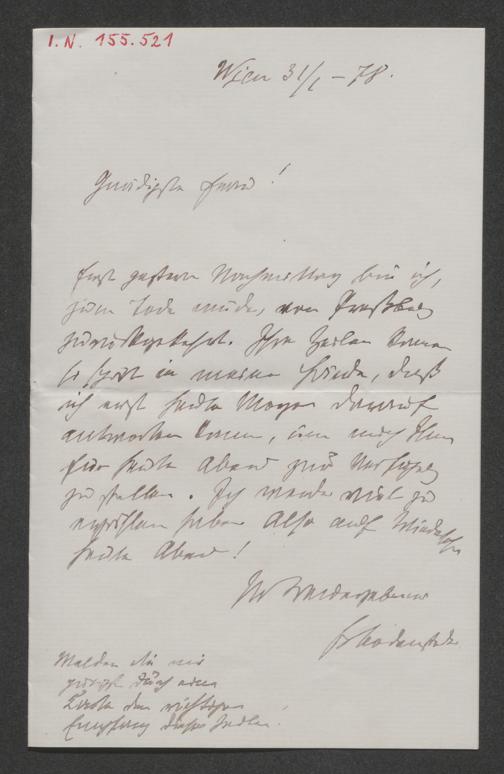 I. N. 155.521
Wien 31/1 – 78.
Gnädigste Frau!
Erst gestern Nachmittag bin ich,
zum Tode müde, von Preßburg
zurückgekehrt. Ihre Zeilen kamen
so spät in meine Hände, daß
ich erst heute Morgen darauf
antworten kann, um mich Ihnen
für heute Abend zur Verfügung
zu stellen. Ich werde viel zu
erzählen haben. Also auf Wiedersehn
heute Abend!
Ihr treuergebener
FrBodenstedt
Melden Sie mir
durch eine
Karte den richtigen
Empfang dieser Zeilen.